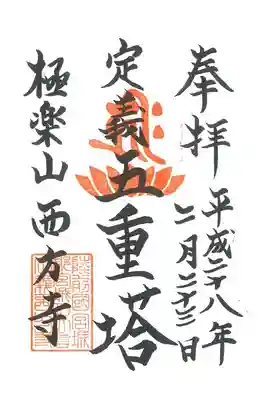 奉拝
平成二十八年
二月二十三日
定義五重塔
極楽山西方寺